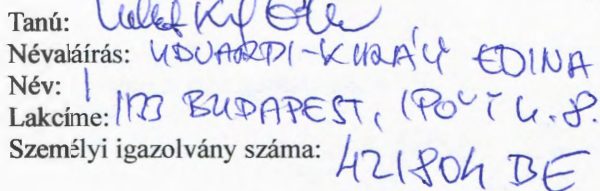 Tanú:
Névaláírás: UDVARDI-KIRÁLY EDINA
Név:
Lakcíme: 1173 BUDAPEST, U. 8.
Személyi igazolvány száma: 421804 BE